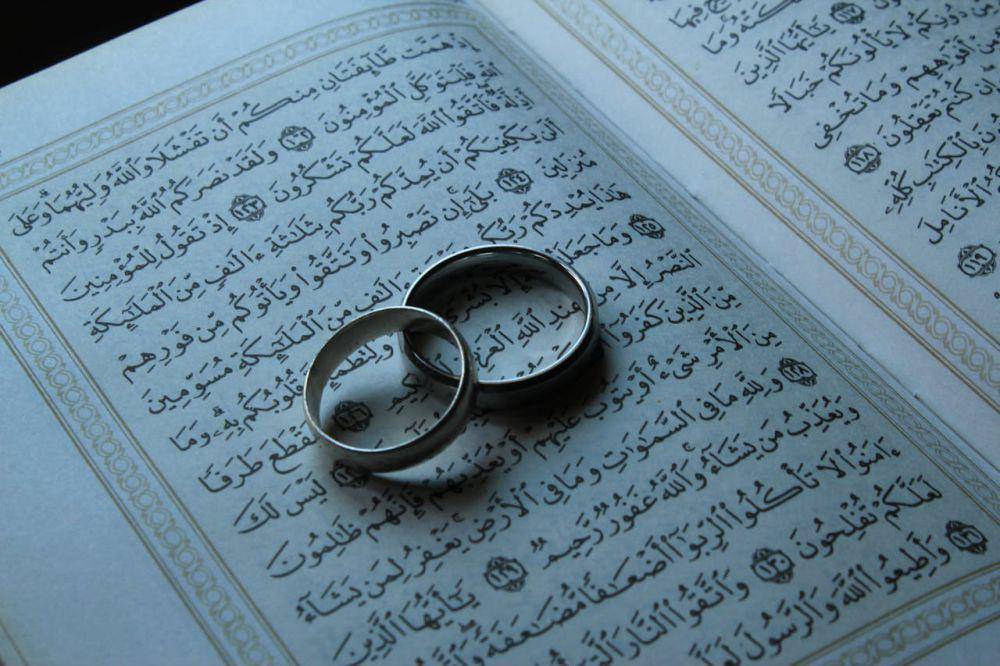 فِيهَا
١١٧
يَٰٓأَيُّهَا ٱلَّذِينَ
مِّن دُونِكُمْ لَا يَأْلُونَكُمْ خَبَالًا
أَفْوَٰهِهِمْ وَمَا تُخْفِى
إِن كُنتُمْ تَعْقِلُونَ ١١٨
بِٱلْكِتَٰبِ كُلِّهِۦ
ٱلْأَنَامِلَ
١١٩
إِذْ هَمَّت طَّآئِفَتَانِ مِنكُمْ أَن تَفْشَلَا وَٱللَّهُ وَلِيُّهُمَا وَعَلَى
ٱللَّهِ فَلْيَتَوَكَّلِ ٱلْمُؤْمِنُونَ ١٢٢ وَلَقَدْ نَصَرَكُمُ ٱللَّهُ بِبَدْرٍ وَأَنتُمْ
أَذِلَّةٌ فَٱتَّقُوا۟ ٱللَّهَ لَعَلَّكُمْ تَشْكُرُونَ ١٢٣ إِذْ تَقُولُ لِلْمُؤْمِنِينَ
أَلَن يَكْفِيَكُمْ أَن يُمِدَّكُمْ رَبُّكُم بِثَلَٰثَةِ ءَالَٰفٍ مِّنَ ٱلْمَلَٰٓئِكَةِ
مُنزَلِينَ ١٢٤ بَلَىٰٓ إِن تَصْبِرُوا۟ وَتَتَّقُوا۟ وَيَأْتُوكُم مِّن فَوْرِهِمْ
هَٰذَا يُمْدِدْكُمْ رَبُّكُم ءَالَٰفٍ مِّنَ ٱلْمَلَٰٓئِكَةِ مُسَوِّمِينَ
١٢٥ وَمَا جَعَلَهُ إِلَّا بُشْرَىٰ وَلِتَطْمَئِنَّ قُلُوبُكُم بِهِۦ وَمَا
ٱلنَّصْرُ إِلَّا مِنْ عِندِ ٱللَّهِ ٱلْعَزِيزِ ٱلْحَكِيمِ ١٢٦ لِيَقْطَعَ طَرَفًا
مِّنَ ٱلَّذِينَ كَفَرُوٓا۟ ١٢٧ لَيْسَ لَكَ
مِنَ ٱلْأَمْرِ شَىْءٌ أَوْ يَتُوبَ عَلَيْهِمْ أَوْ يُعَذِّبَهُمْ فَإِنَّهُمْ ظَٰلِمُونَ
١٢٨ وَلِلَّهِ مَا فِى ٱلسَّمَٰوَٰتِ وَمَا فِى ٱلْأَرْضِ يَغْفِرُ لِمَن يَشَآءُ
وَيُعَذِّبُ مَن يَشَآءُ وَٱللَّهُ غَفُورٌ رَّحِيمٌ ١٢٩ يَٰٓأَيُّهَا ٱلَّذِينَ
ءَامَنُوا۟ لَا تَأْكُلُوا۟ ٱلرِّبَوٰٓا۟ أَضْعَٰفًا مُّضَٰعَفَةً وَٱتَّقُوا۟
لَعَلَّكُمْ تُفْلِحُونَ ١٣٠ وَٱتَّقُوا۟ ٱلنَّارَ ٱلَّتِىٓ
١٣١ وَأَطِيعُوا۟ ٱللَّهَ وَٱلرَّسُولَ